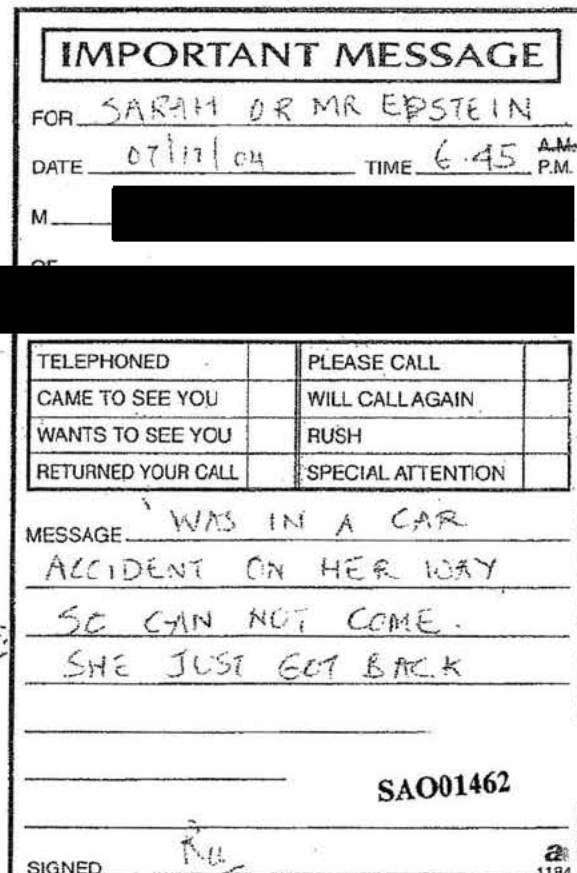 IMPORTANT MESSAGE
FOR SARAH OR MR EPSTEIN
DATE 07/17/04 TIME 6.45 A.M. P.M.
M
OF
TELEPHONED PLEASE CALL
CAME TO SEE YOU WILL CALL AGAIN
WANTS TO SEE YOU RUSH
RETURNED YOUR CALL SPECIAL ATTENTION
MESSAGE WAS IN A CAR
ACCIDENT ON HER WAY
SO CAN NOT COME.
SHE JUST GOT BACK
SAO01462
SIGNED
1184